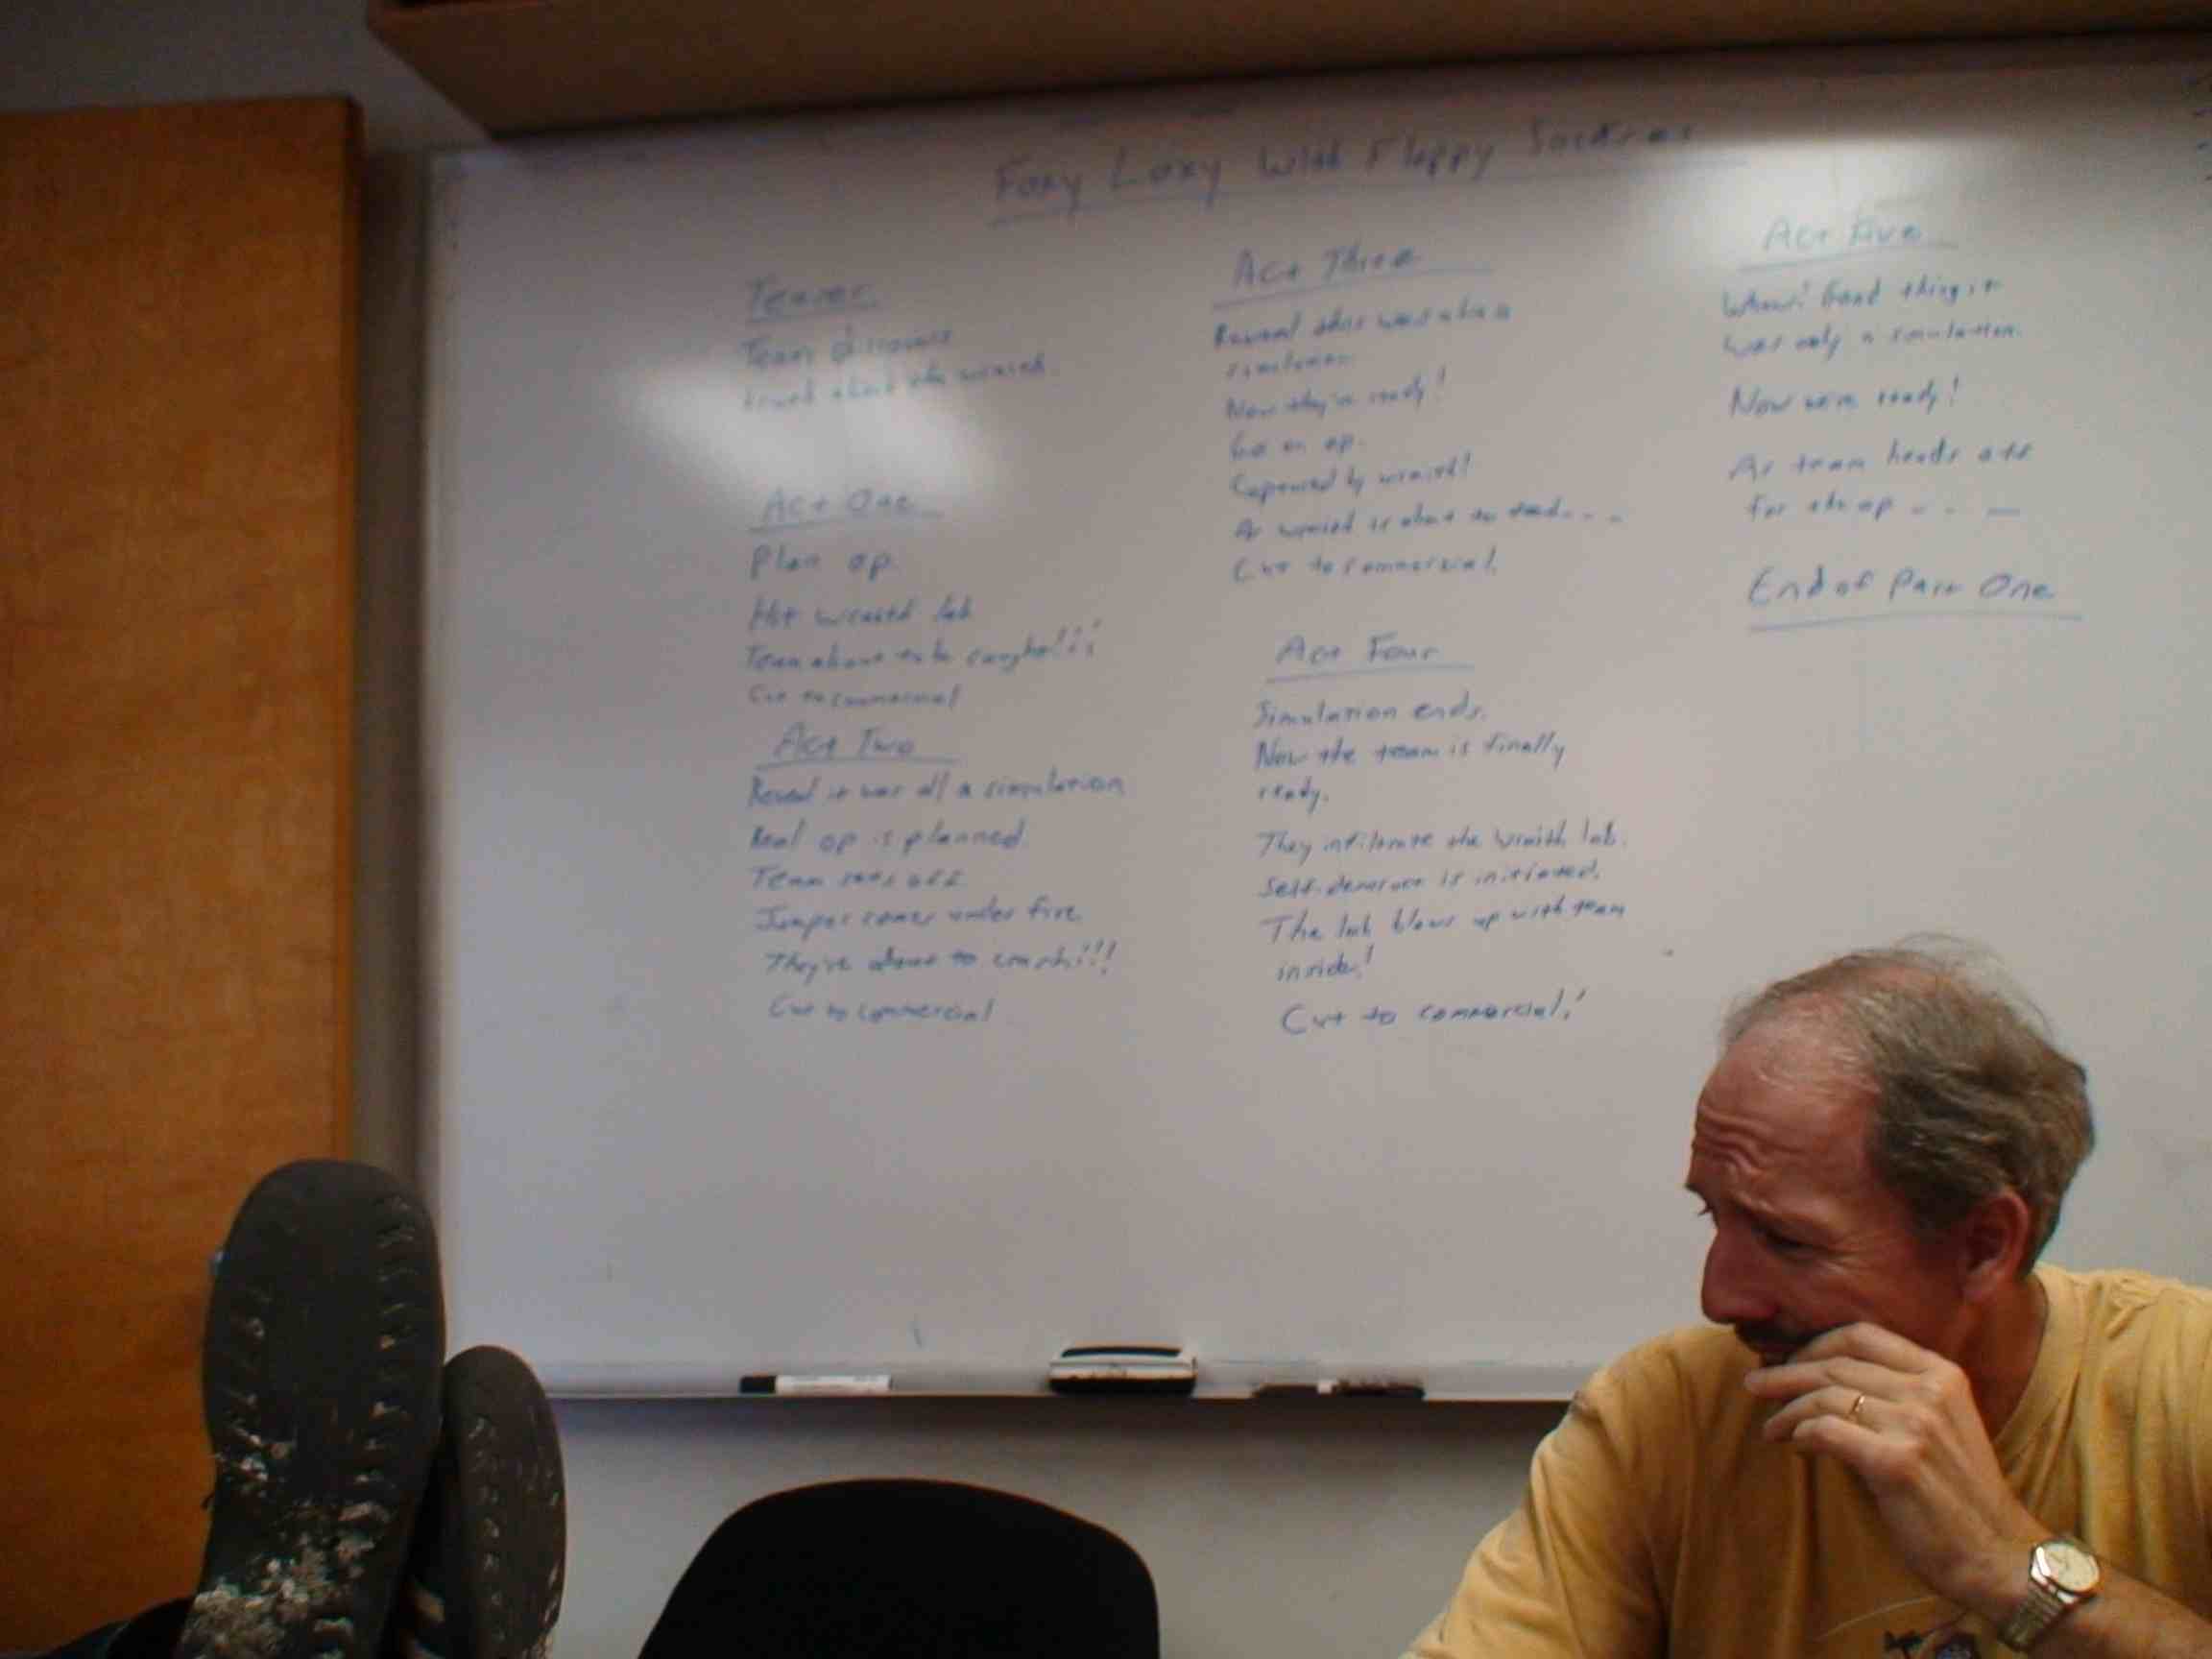 Foxy Loxy With Floppy
Teaser
Team discovers
about the wraith
Act One
Plan op.
Hit wraith lab
Team about to be caught!!!
Cut to commercial
Act Two
Reveal it was all a simulation
Real op is planned.
Team sets off
Jumper comes under fire
They're about to crash!!!
Cut to commercial
Act Three
Reveal this was also a
simulation
Now they're ready!
Go on op.
Captured by wraith!
As wraith is about to feed...
Cut to commercial.
Act Four
Simulation ends.
Now the team is finally
ready.
They infiltrate the wraith lab.
Self-destruct is initiated.
The lab blows up with team
inside!
Cut to commercial!
Act Five
Whew! Good thing it
was only a simulation.
Now we're ready!
As team heads off
for the op - - -
End of Part One